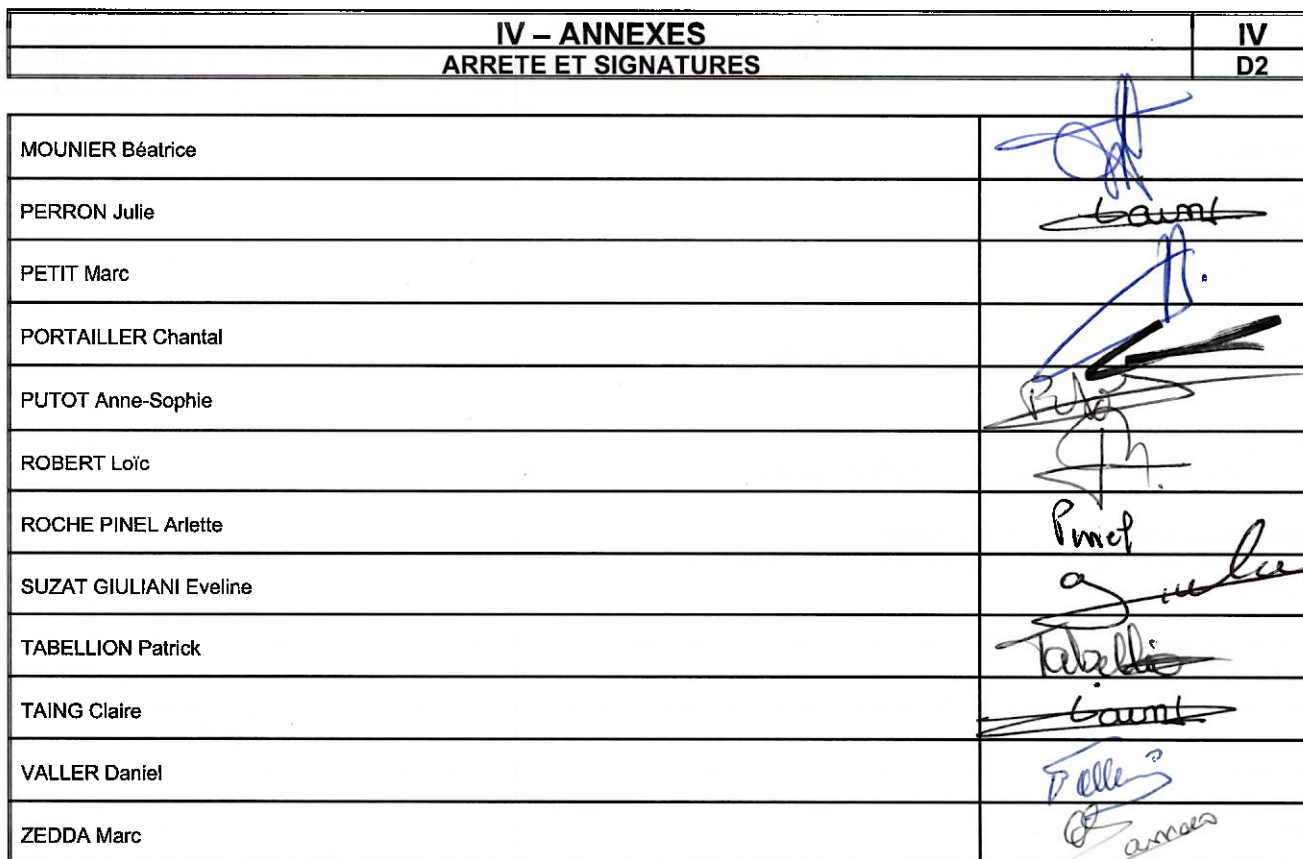 IV – ANNEXES IV
ARRETE ET SIGNATURES D2
MOUNIER Béatrice
PERRON Julie
PETIT Marc
PORTAILLER Chantal
PUTOT Anne-Sophie
ROBERT Loïc
ROCHE PINEL Arlette Pinel
SUZAT GIULIANI Eveline
TABELLION Patrick Tabellio
TAING Claire
VALLER Daniel
ZEDDA Marc